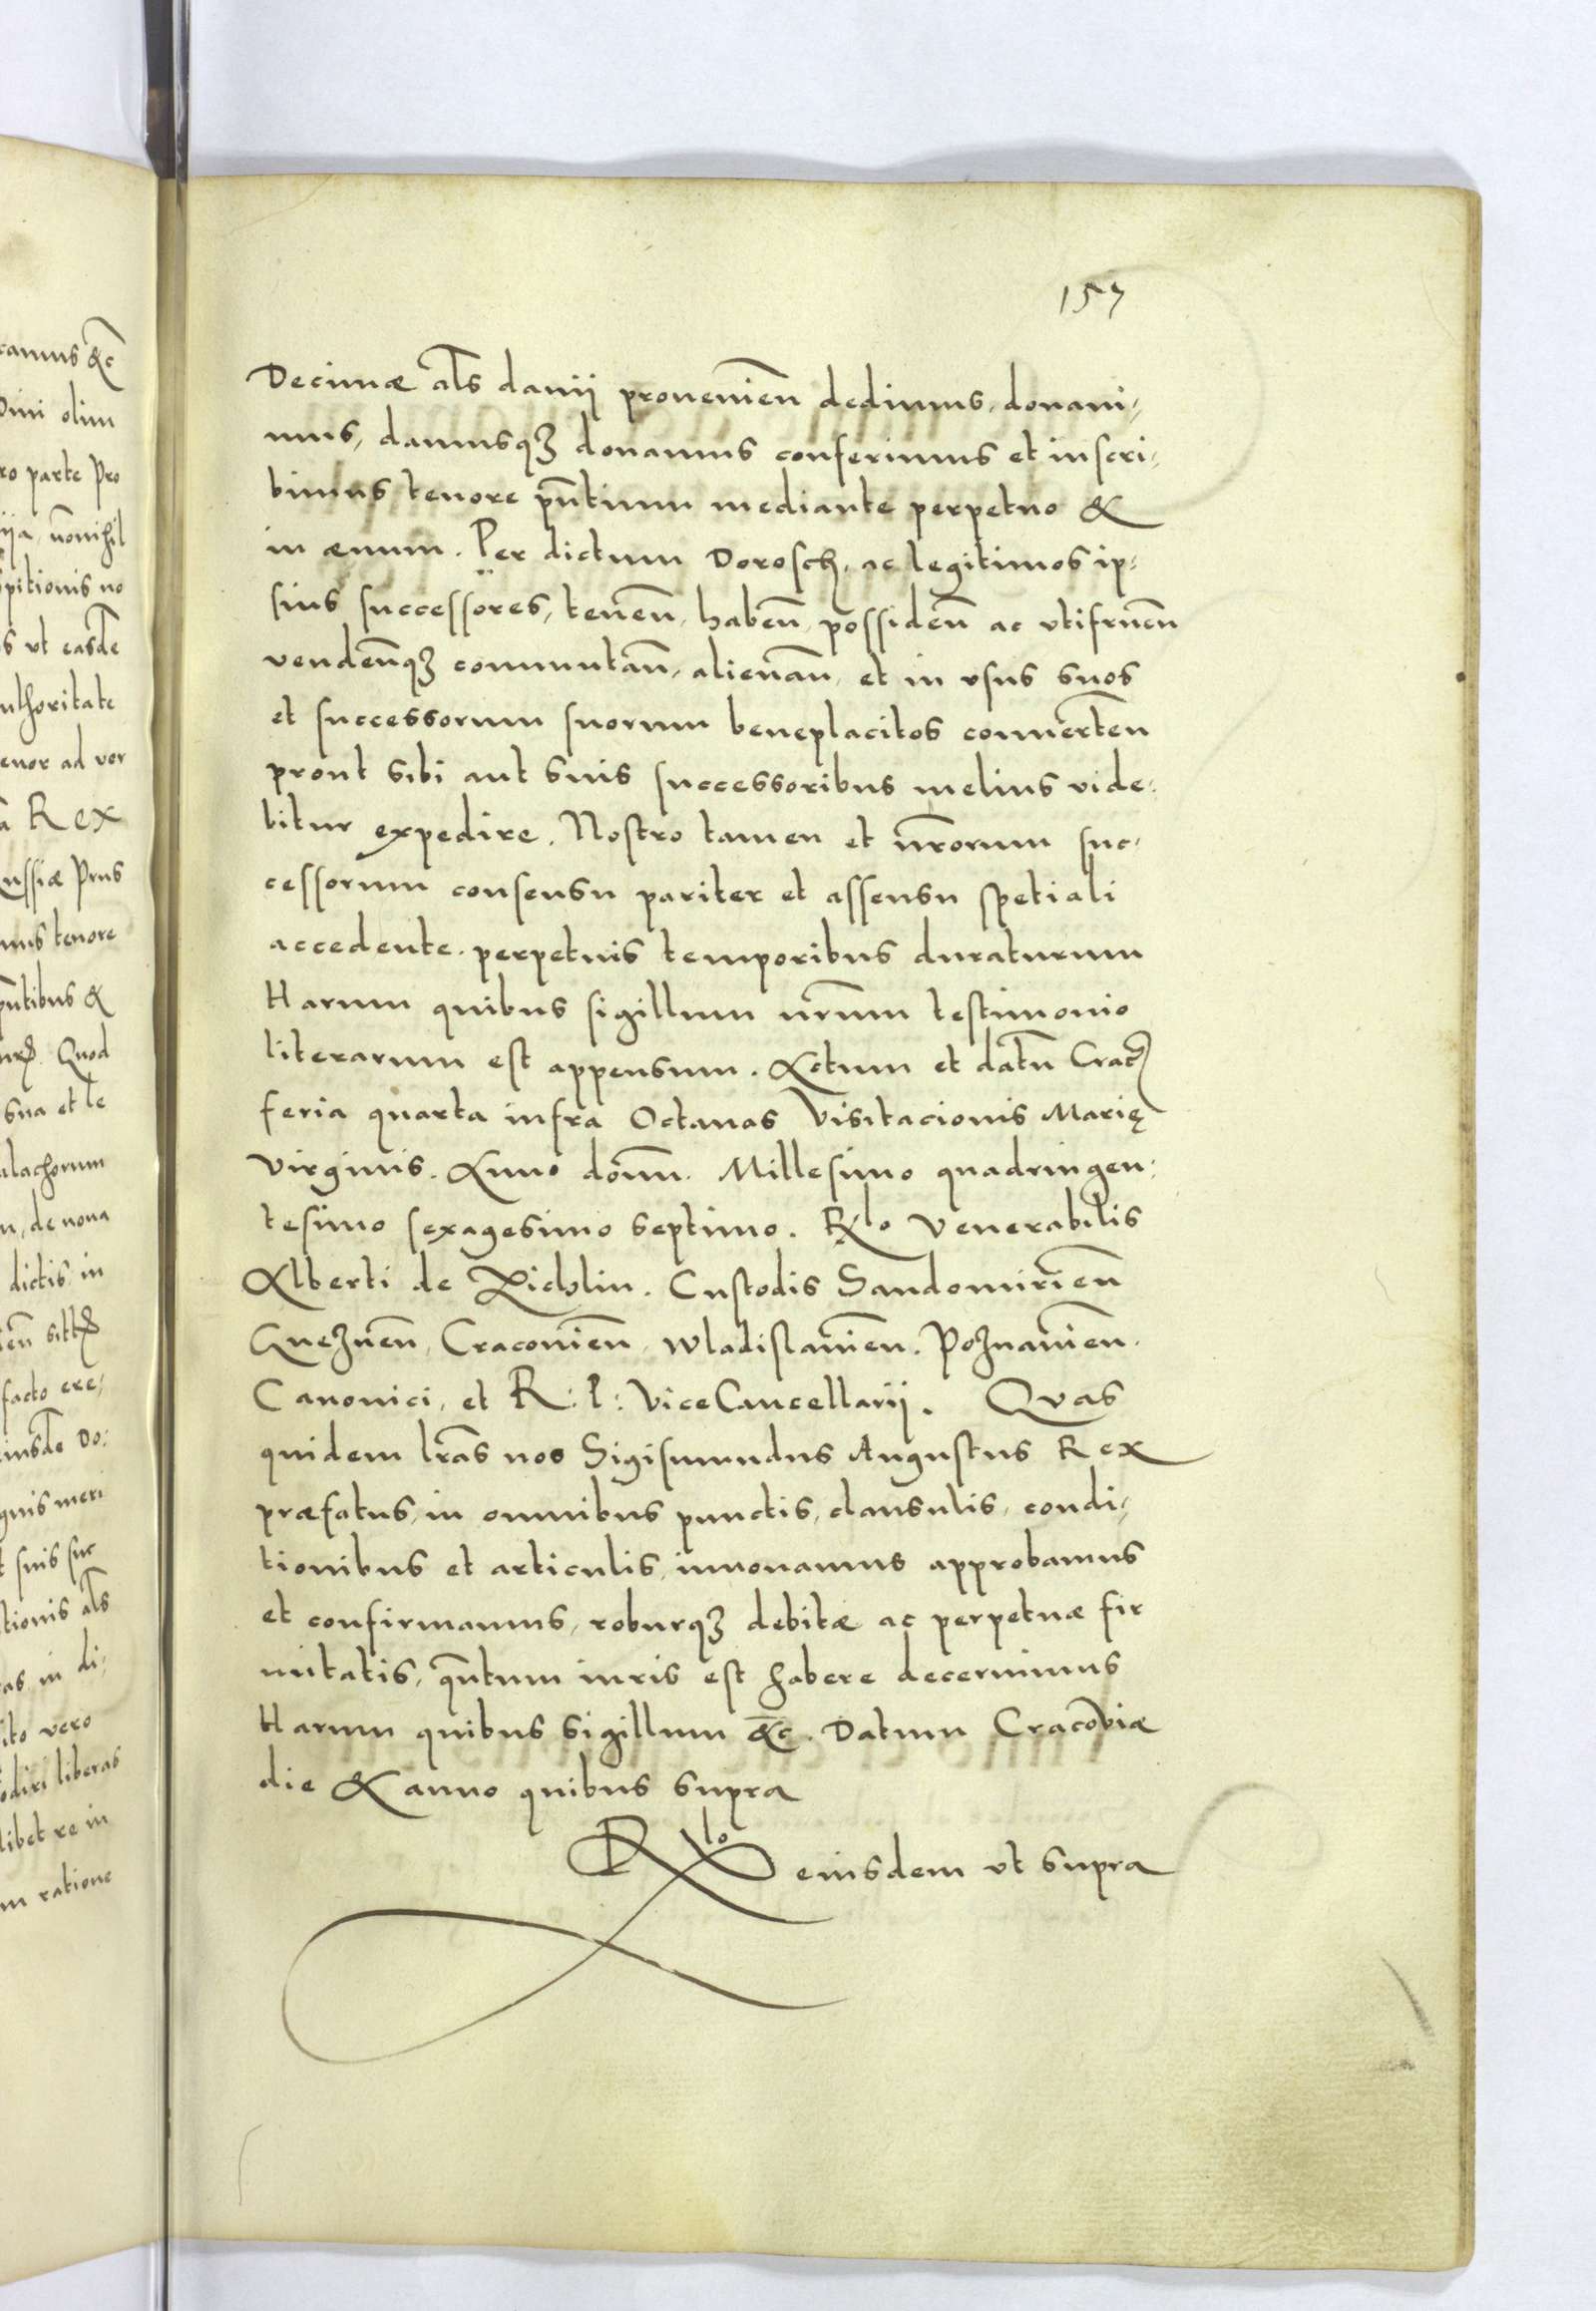 157
Decimæ al̄s danij prouenien̄ dedimus, donaui-
mus, damusqꝫ donamus conferimus et inscri-
bimus tenore pn̄tium mediante perpetuo &
in æuum. Per dictum Dorosch, ac legitimos ip-
sius successores, tenen̄, haben̄, possiden̄ ac vtifruen̄
venden̄qꝫ commutan̄, alienan̄, et in vsus suos
et successorum suorum beneplacitos conuerten̄
prout sibi aut suis successoribus melius vide-
bitur expedire. Nostro tamen et nr̄orum suc-
cessorum consensu pariter et assensu spetiali
accedente. perpetuis temporibus duraturum
Harum quibus sigillum nr̄um testimonio
literarum est appensum. Actum et datū Crac̄
feria quarta infra Octauas Visitacionis Marię
virginis. Anno domī. Millesimo quadringen-
tesimo sexagesimo septimo. Rlo Venerabilis
Alberti de Zichlin. Custodis Sandomirien̄
Gneznen̄, Cracouien̄, Wladislauien̄. Poznanien̄.
Canonici, et R: P: ViceCancellarij. Qvas
quidem lr̄as nos Sigismundus Augustus Rex
præfatus, in omnibus punctis, clausulis, condi-
tionibus et articulis, innouamus approbamus
et confirmamus, roburqꝫ debitæ ac perpetuæ fir
mitatis, qn̄tum iuris est habere decernimus
Harum quibus sigillum &c̄. Datum Cracoviæ
die & anno quibus supra
Rlo eiusdem vt supra
camus &c̄
olim
ro parte Pro
iija, nōnihil
pitionis no
s vt easdē
uthoritate
enor ad ver
a Rex
ussiæ Prus
mus tenore
pn̄tibus &
Quod
sua et le
alachorum
n, de noua
dictis in
facto ere-
eiusdē Do:
gnis meri
t suis suc
tionis al̄s
as in di-
ito vero
odiri liberas
libet re in
m ratione